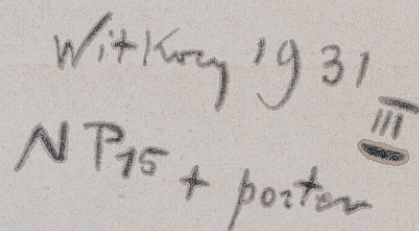 Witkacy 1931
III
NP15 + porter